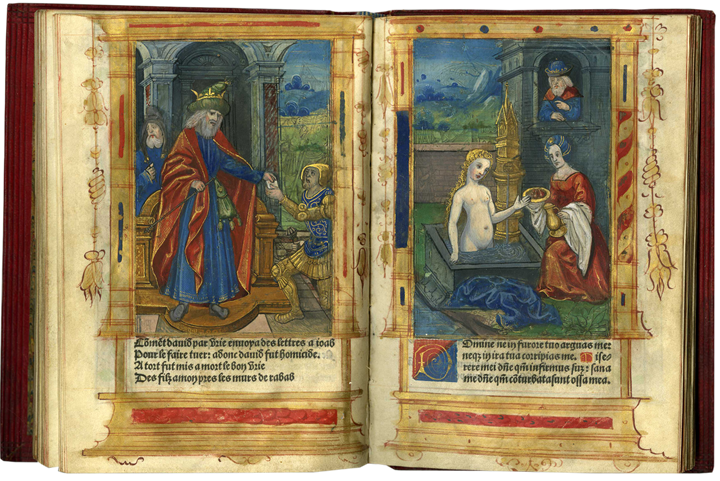 Cõmẽt david par Vrie envoya des lettres a ioab
Pour le faire tuer: adonc david fut homicide.
A tort fut mis a mort le bon Vrie
Des filz amon pres les murs de rabab
Domine ne in furore tuo arguas me:
neqz in ira tua corripias me. Mise-
rere mei dñe qm̃ infirmus suz: sana
me dñe qm̃ cõturbata sunt ossa mea.